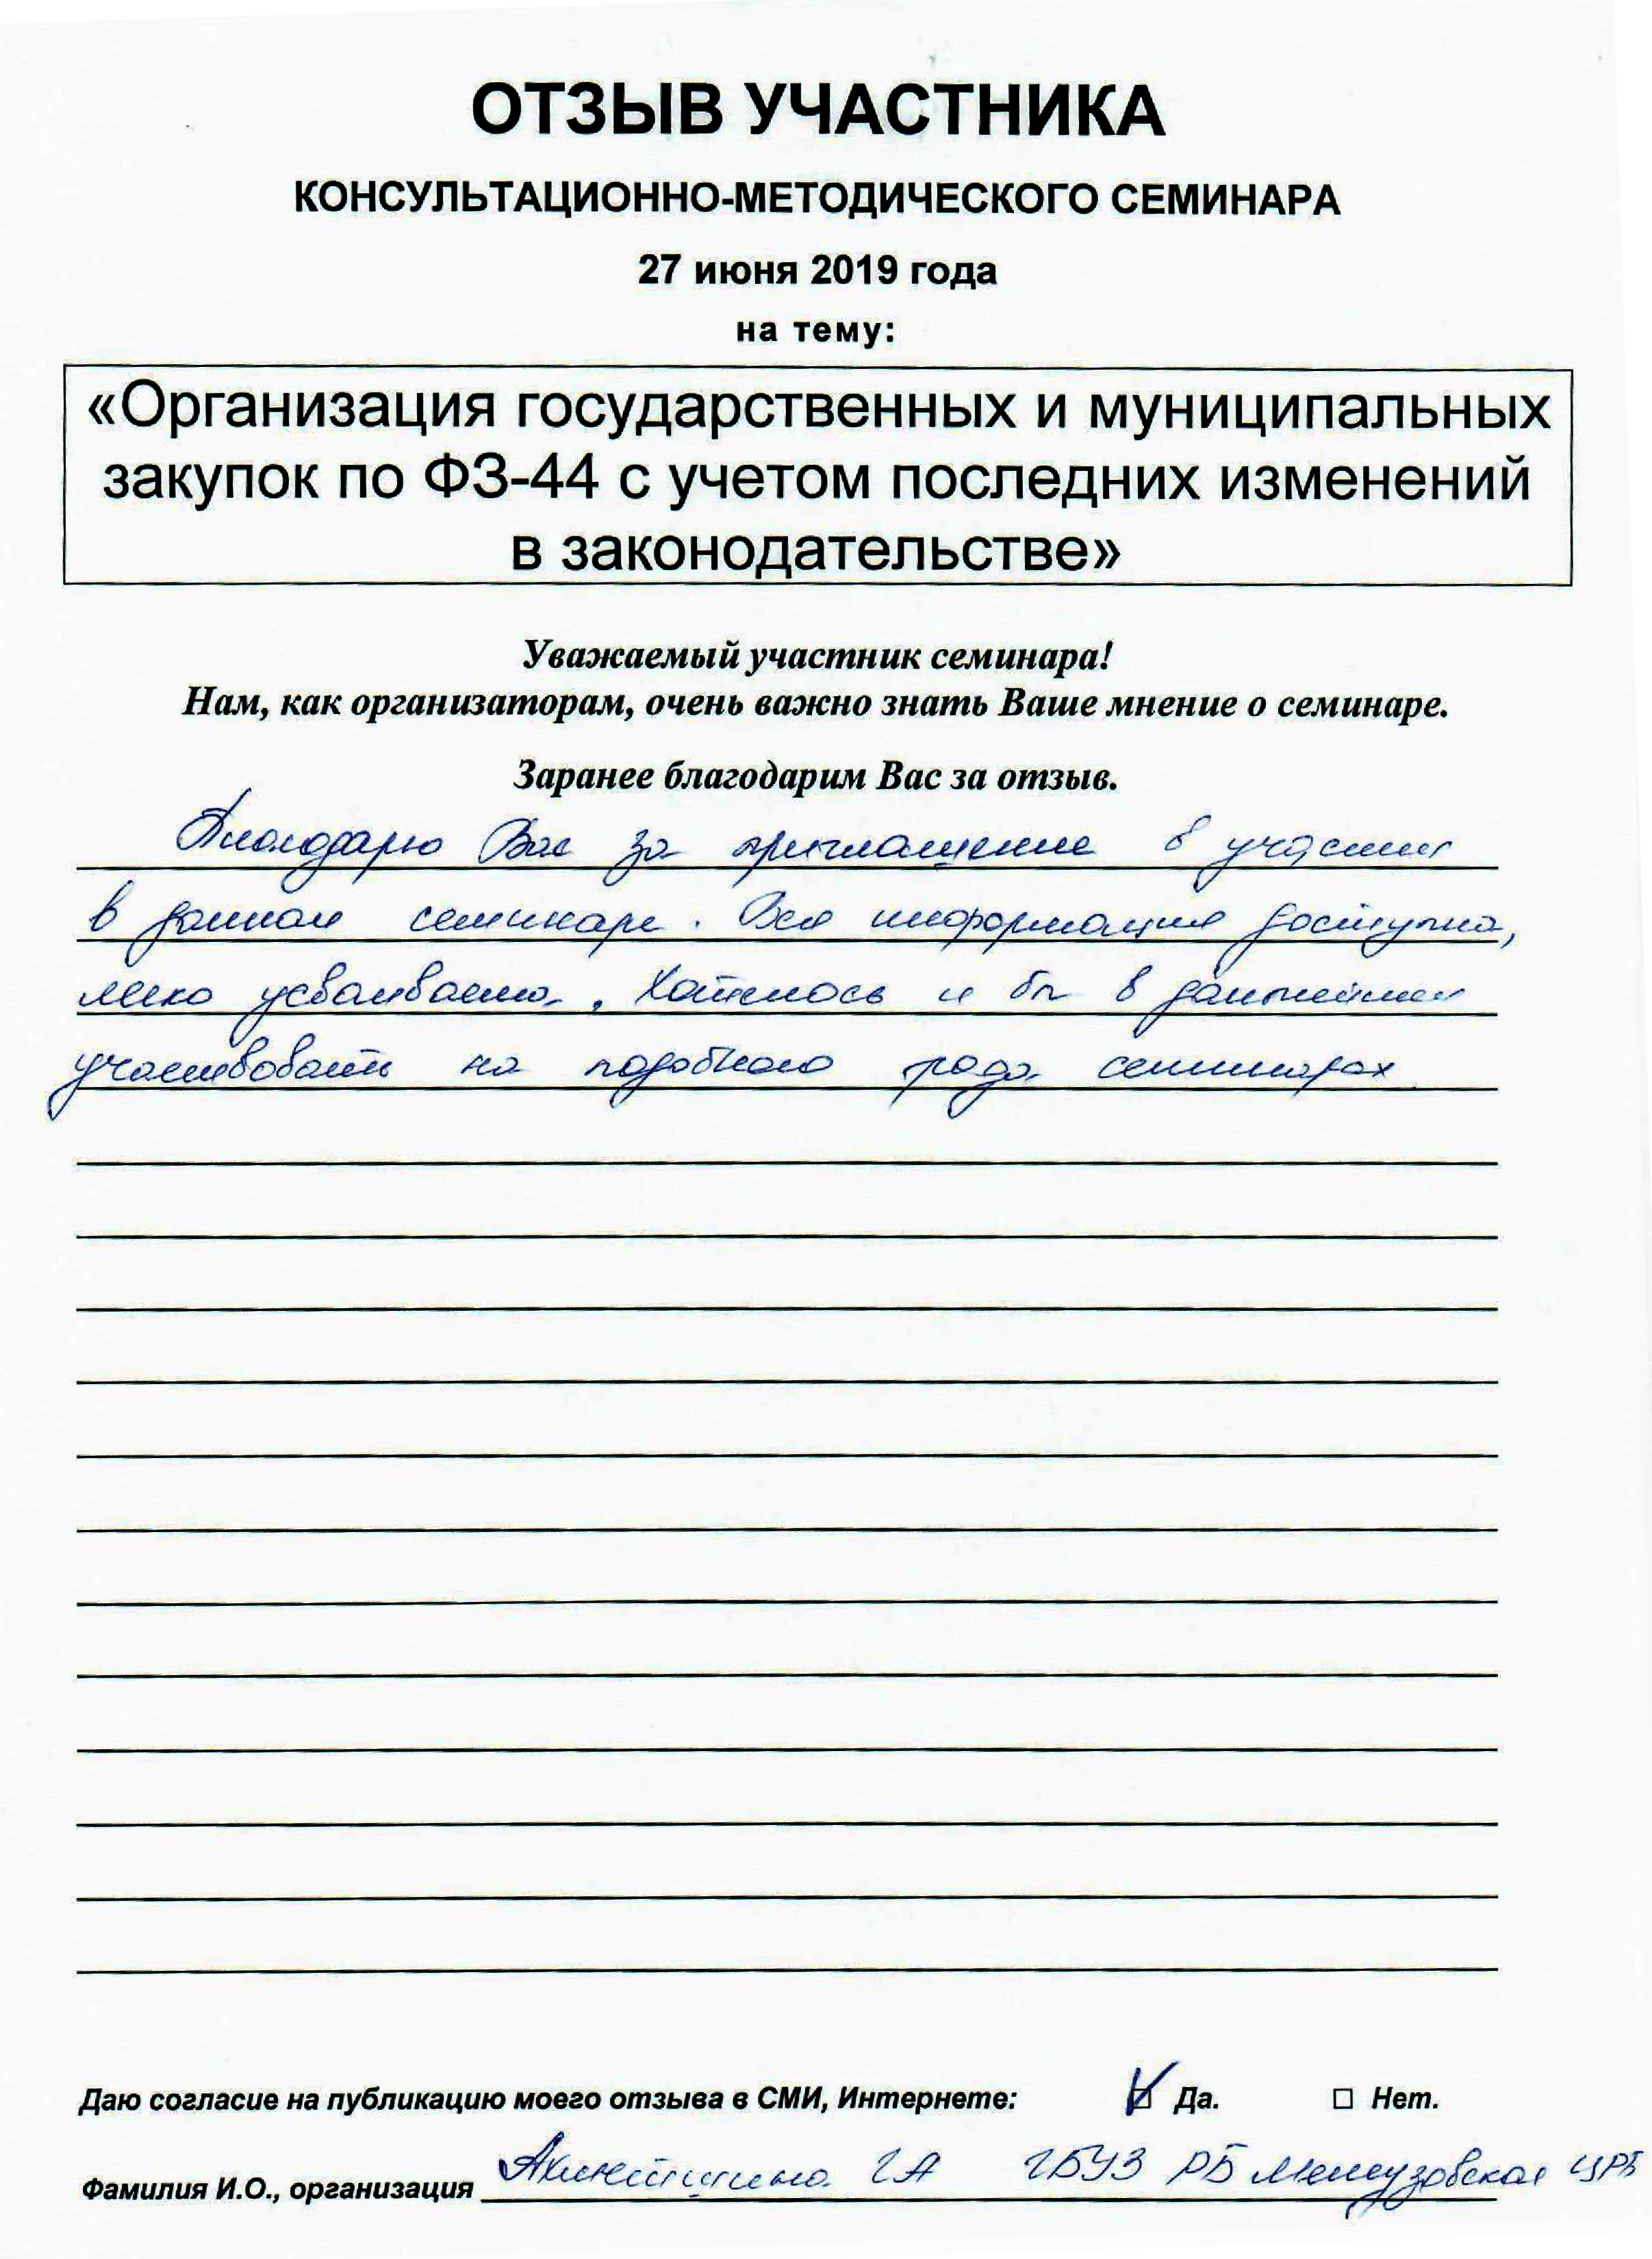 ОТЗЫВ УЧАСТНИКА
КОНСУЛЬТАЦИОННО-МЕТОДИЧЕСКОГО СЕМИНАРА
27 июня 2019 года
на тему:
«Организация государственных и муниципальных
закупок по ФЗ-44 с учетом последних изменений
в законодательстве»
Уважаемый участник семинара!
Нам, как организаторам, очень важно знать Ваше мнение о семинаре.
Заранее благодарим Вас за отзыв.
Благодарю Вас за приглашение в участии
в данном семинаре. Вся информация доступна,
легко усваиваема. Хотелось и бы в дальнейшем
участвовать на подобного рода семинарах
Даю согласие на публикацию моего отзыва в СМИ, Интернете: Да. Нет.
Фамилия И.О., организация ГА ГБУЗ РБ Мелеузовская ЦРБ